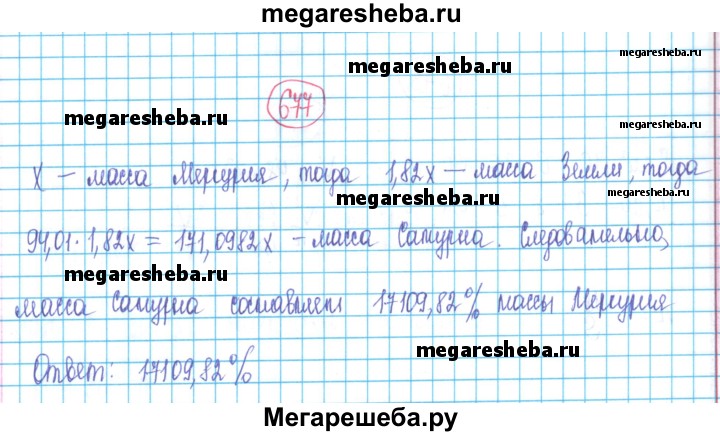 megaresheba.ru
megaresheba.ru
megaresheba.ru
677
megaresheba.ru
megaresheba.ru
x – масса Меркурия, тогда 1,82x – масса Земли, тогда
megaresheba.ru
megaresheba.ru
94,01·1,82x = 171,0982x – масса Сатурна. Следовательно,
megaresheba.ru
масса Сатурна составляет 17109,82% массы Меркурия
megaresheba.ru
Ответ: 17109,82%
Мегарешеба.ру